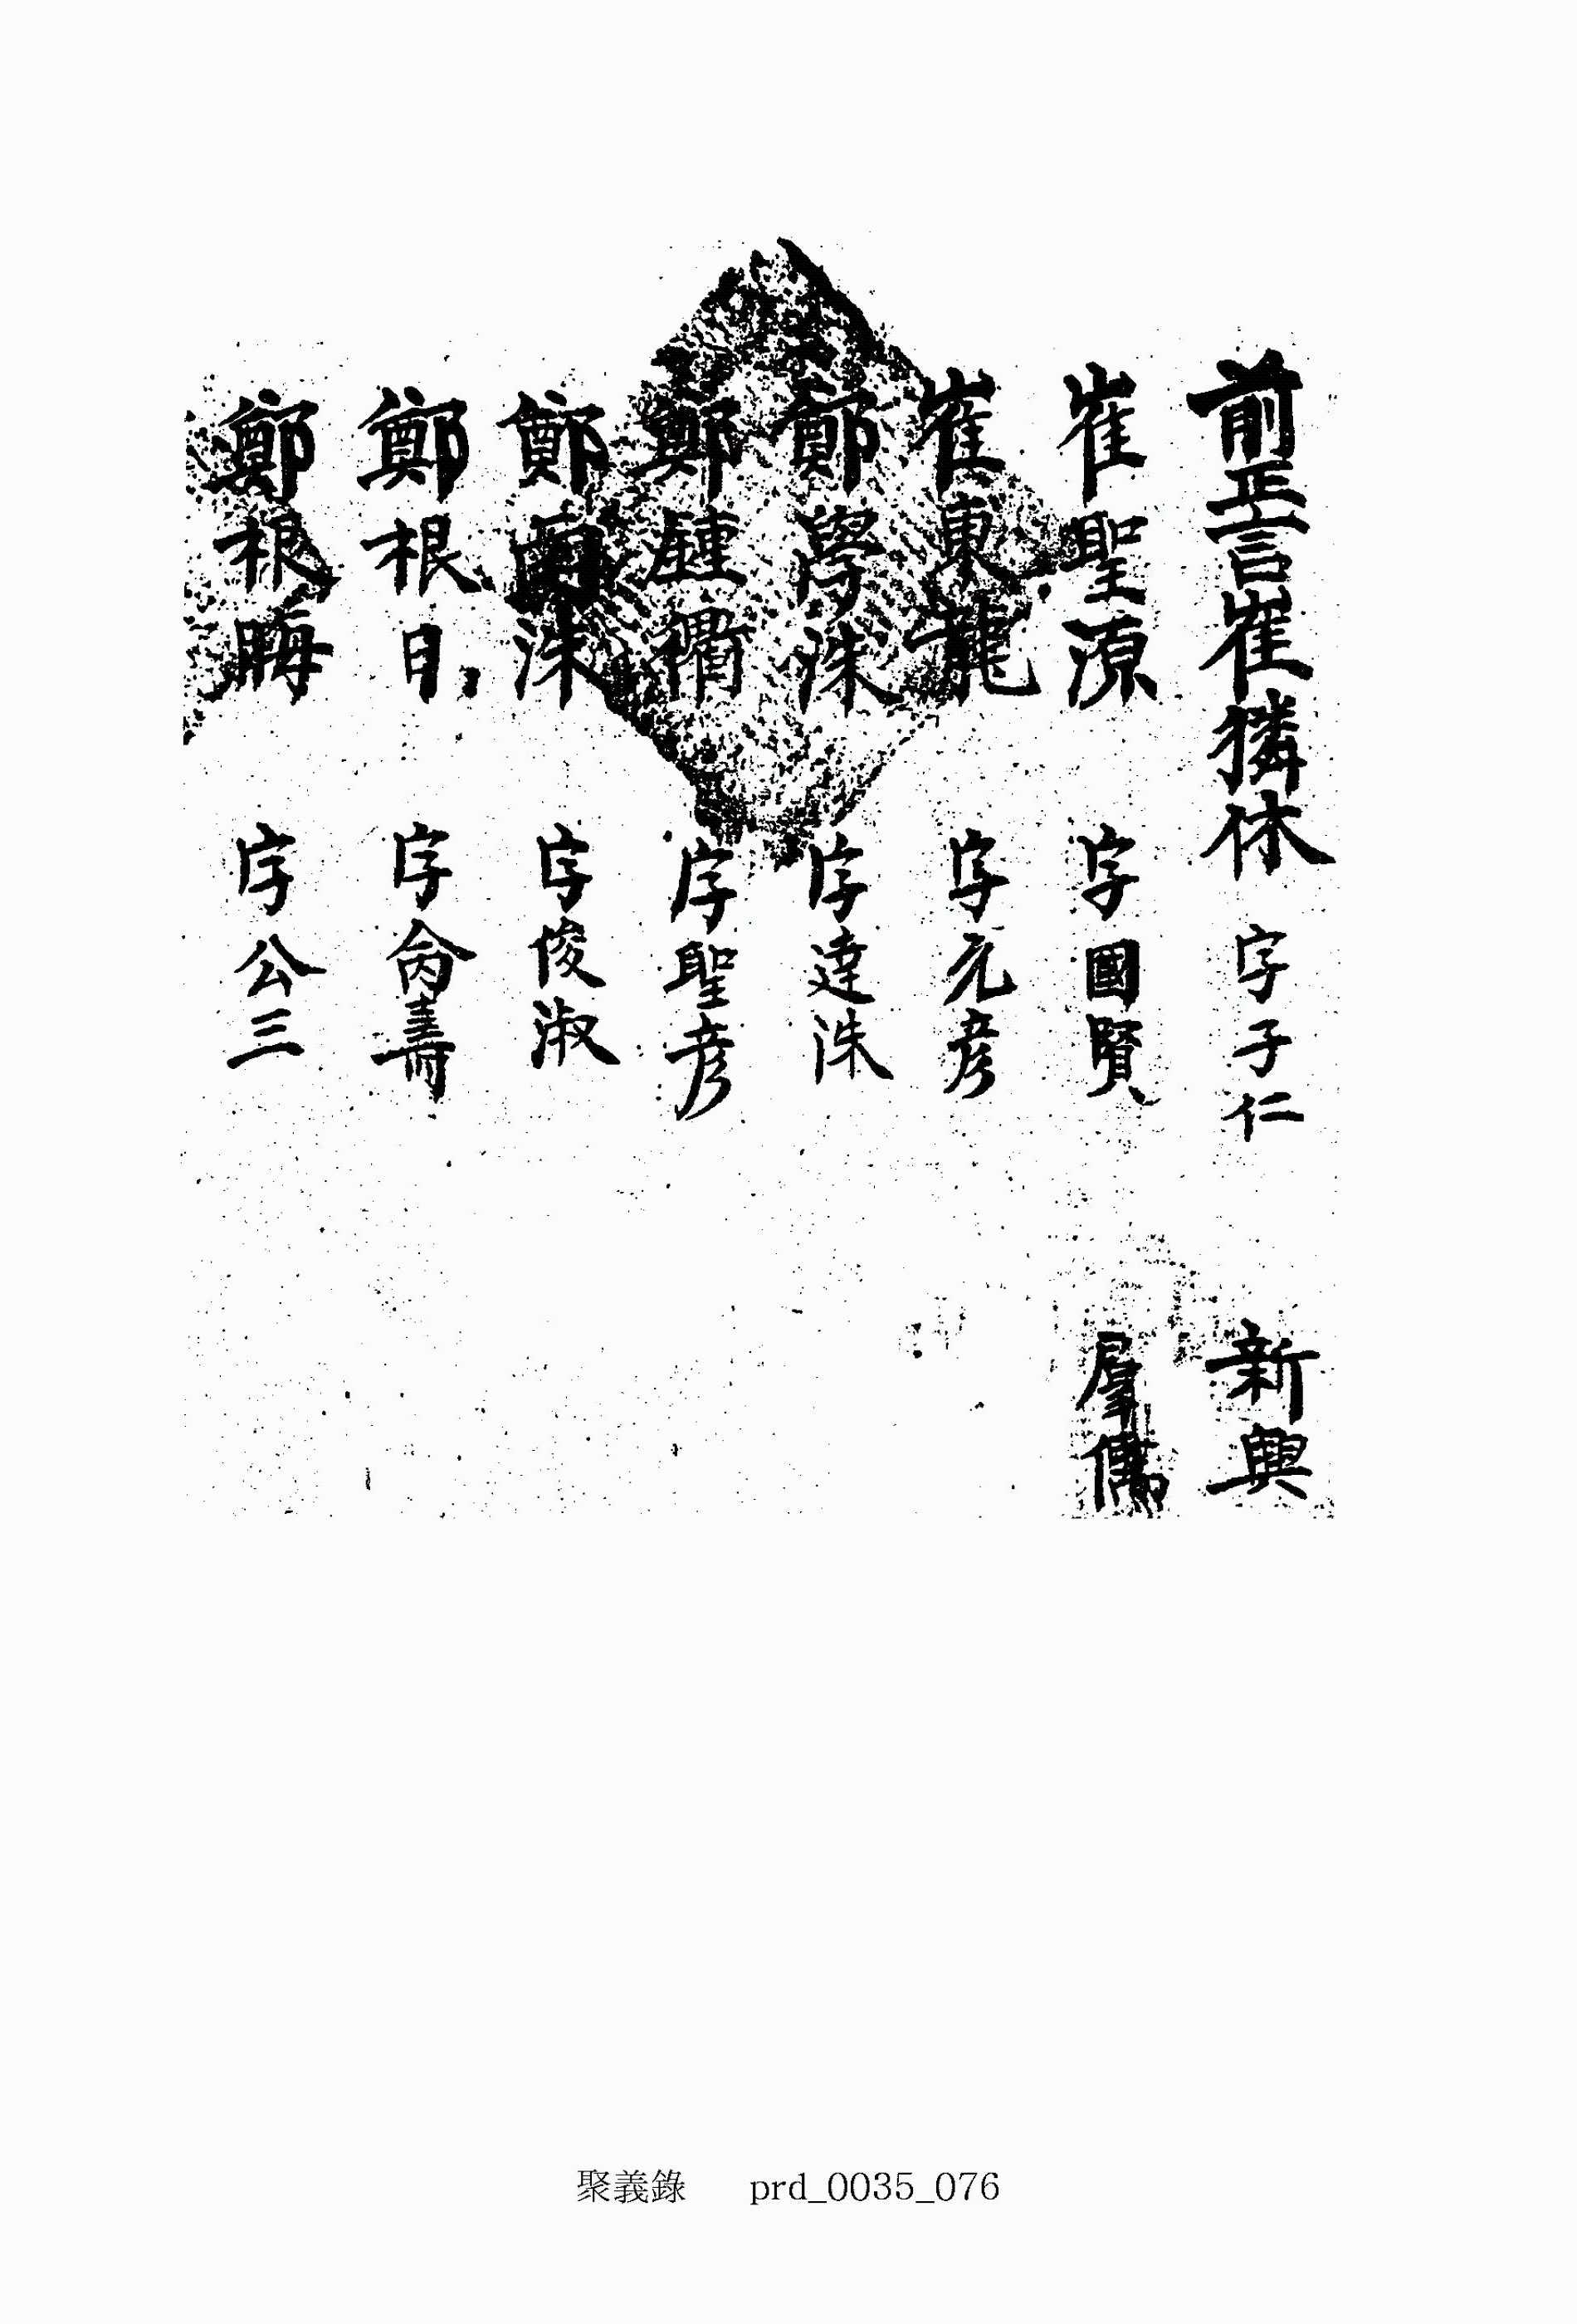 前正言崔獜休 字子仁 新興
崔聖源 字國賢 羣儒
崔東龍 字元彦
鄭學洙 字達洙
鄭鍾衢 字聖彦
鄭洙 字俊淑
鄭根 字丙壽
鄭根晦 字公三
聚義錄 prd_0035_076